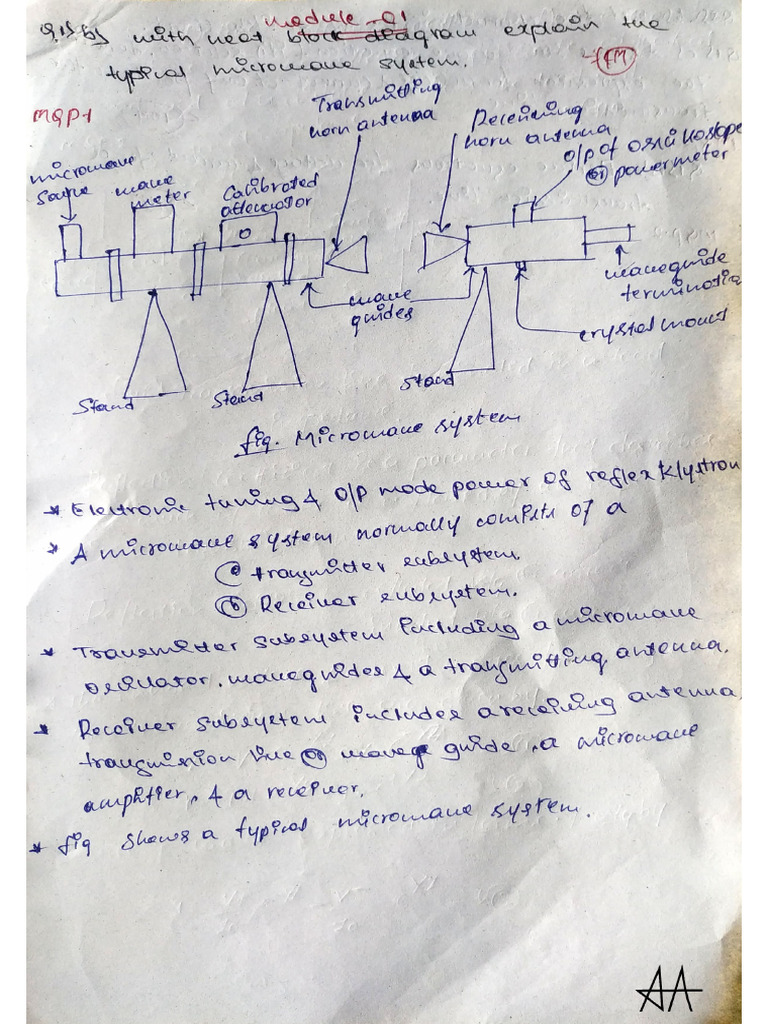 module-01
Q.1.b) with neat block diagram explain the
typical microwave system.
MQP1
Transmitting
horn antenna
Receiving
horn antenna
microwave
wave
meter
Calibrated
attenuator
powermeter
waveguide
wave
guides
crystal mount
Stand
Stand
Stand
fig. Microwave system
* Electronic tuning & O/P mode power of reflex klystron
* A microwave system normally of a
(a) transmitter subsystem.
(b) Receiver subsystem.
* Transmitter subsystem including a microwave
waveguides & a transmitting antenna.
* Receiver subsystem includes a receiving antenna,
line or guide, a microwave
amplifier, & a receiver.
* fig shows a typical microwave system.
AA